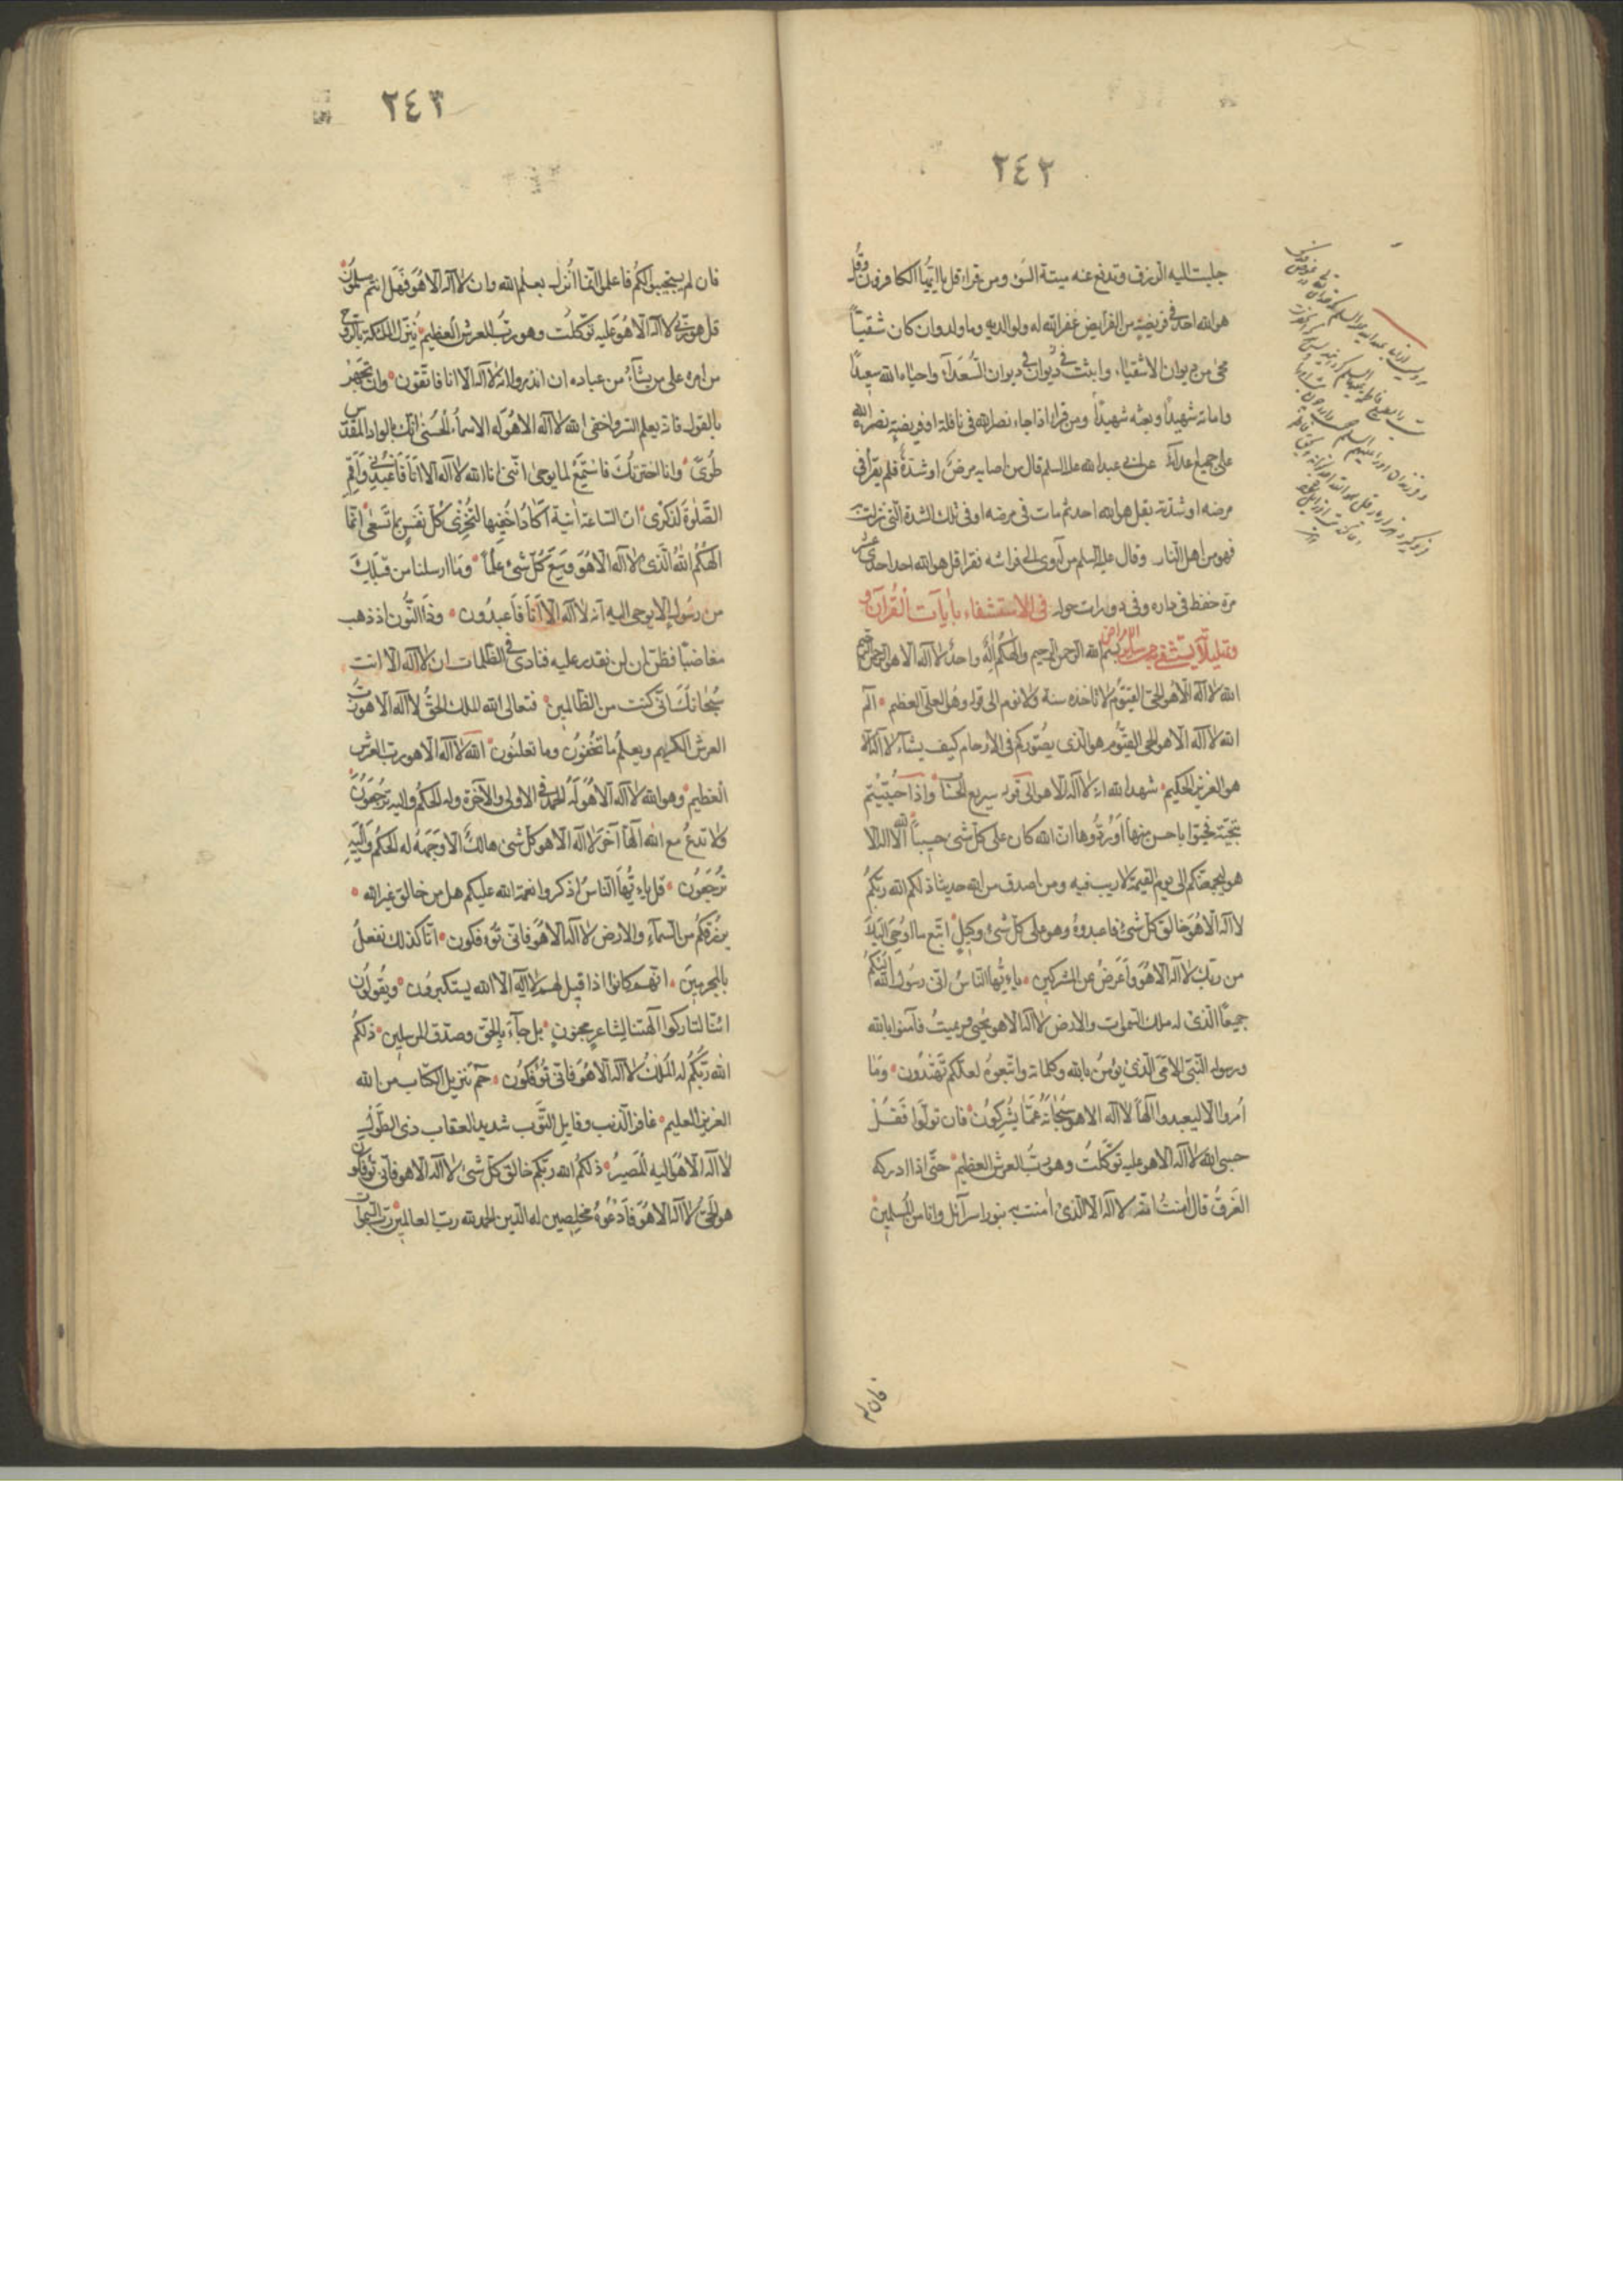 ٢٤٢
جلبت اليه الرزق وتدفع عنه ميتة السوء ومن قراء قل يا ايها الكافرون وقل
هو الله احد فى فريضة من الفرايض غفر الله له ولوالديه وما ولد وان كان شقيّاً
محى من ديوان الاشقياء واثبت فى ديوان السُّعَدآء واحياه الله سعيداً
واماته شهيداً وبعثه شهيداً ومن قراء اذا جاء نصر الله فى نافلة او فريضة نصره الله
على جميع اعدائه عن ابى عبد الله عليه السلم قال من اصابه مرض او شدة فلم يقرأ فى
مرضه او شدّته بقل هو الله احد ثم مات فى مرضه او فى تلك الشدة التى نزلت
فهو من اهل النار وقال عليه السلم من آوى الى فراشه فقرا قل هو الله احد احدى عشر
مرة حفظ فى داره وفى دويرات حوله فى الاستشفاء بأيآت القُرآن و
وتهليلاً يستشفى من سائر الامراض بسم الله الرحمن الرحيم والٰهكُم اِلٰهٌ واحدٌ لا اله الا هو الرحمن الرحيم
الله لا اله الا هُو الحىّ القيّوُم لا تاخذه سنة ولا نوم الى قوله وهُو العلىّ العظيم الم
الله لا اله الا هو الحى القيّوم هو الّذى يصُوّركم فى الارحام كيف يشآء لا اله الا
هو العزيز الحكيم شهد الله انه لا اله الا هو الى قوله سريع الحساب واذا حُيّيْتم
بتحيّة فحيّوا باحسن منها اوْ رُدُّوها انّ الله كان على كلّ شئ حسيباً الله لا اله الا
هو ليجمعنّكم الى يوم القيمة لا ريب فيه ومن اصدق من الله حديثا ذلكم الله ربّكُم
لا اله الّا هُوَ خالق كلّ شئ فاعبدوهُ وهو على كلّ شئ وكيلٍ اتبع ما اوحِىَ اليك
من ربّك لا اله الا هُوَ وَاَعرضْ عن المشركين ياءيُّها النّاسُ انى رسُول الله اليكُم
جميعًا الّذى له ملك السّموات والارض لا اله الا هو يُحيى ويميتُ فآمنوا بالله
ورسوله النّبىّ الامّى الّذى يؤمنُ بالله وكلماته واتّبعوُه لعلّكم تَهْتدُون وَمَا
اُمروا الّا ليعبدوا الٰهاً لا اله الا هو سُبحانَهُ عَمّا يشْرِكونُ فان تولّوا فَقُلْ
حسبى الله لا اله الا هو عليه توكّلتُ وهو ربُّ العرش العظيم حتّى اذا ادركه
الغَرقُ قال اٰمنتُ انّه لا اله الا الّذى اٰمنت به بنو اسرآئل وانا من المُسلمين
فان لم
٢٤٣
فان لم يستجيبوا لكُم فاعلموا انّما اُنزل بعلم الله وان لا اله الا هُوَ فَهَل انتم مسلمون
قل هو ربّى لا اله الّا هُوَ عليه توكّلتُ وهو ربّ العرش العظيم يُنَزّل الملئكة بالروح
من امره على من يشآء من عباده ان انذروا انه لا اله الا انا فاتّقون وان تجهر
بالقول فانّه يعلم السّر واخفى الله لا اله الا هُوَ له الاسماءُ الحُسنى انّك بالواد المقدّس
طُوىً وانا اخترتُك فاستمعْ لما يوحى انّنى انا الله لا اله الا انَا فَاعبُدنى وَاَقِمِ
الصّلوٰة لذكرى انّ السّاعة اتية اكادُ اخفيها لتُجزٰى كلّ نفسٍ بما تَسعى انّما
الٰهكُم اللهُ الّذى لا اله الا هُوَ وسِعَ كُلّ شئ علماً وما ارسلنا من قَبلِك
من رسُولٍ الا يوحى اليه انّه لا اله الا اَنَا فَاعبدُون وذَا النُّون اذ ذهب
مغاضبًا فظنّ ان لن نقدر عليه فنادى فى الظلمات ان لا اله الا انت
سُبحانكَ انّى كنت من الظالمين فتعالى الله الملك الحقُّ لا اله الا هو ربّ
العرش الكريم ويعلمُ ما تخفونُ وما تعلنُون الله لا اله الا هو ربّ العرش
العظيم وهو الله لا اله الا هُوَ لَهُ الحمد فى الاولى والآخرة وله الحكم واليه ترْجعوُن
ولا تدعُ مع الله الٰهاً آخَرَ لا اله الا هو كلّ شئ هالكٌ الا وَجهَهُ له الحكم وَاليْهِ
ترُجَعُون قل ياءيُّها الناسُ اذكروا نعمة الله عليكم هل من خالق غير الله
يرزقكُم من السمآءِ والارض لا اله الا هُوَ فانّى تؤفكون انّا كذلك نفعلُ
بالمجرمينَ انّهم كانوا اذا قيل لهم لا اله الا الله يستكبرُون ويقُولُون
ائنّا لتاركوا آلهتنا لشاعرٍ مجنونٍ بل جآء بالحقّ وصدّق المرسلين ذلكُم
الله ربُّكُم له المُلكُ لا اله الا هُوَ فانّى تؤْفكُون حم تنزيل الكتاب من الله
العزيز العليم غافر الذنب وقابل التّوْب شديد العقاب ذى الطّول
لا اله الا هُوَ اليه المصيرُ ذلكُمُ الله ربّكم خالق كلّ شئ لا اله الا هو فانّى تؤفكون
هو الحىّ لا اله الا هُوَ فادعُوهُ مخلصين له الدّين الحمد لله ربّ العالمين ربّ السّموات